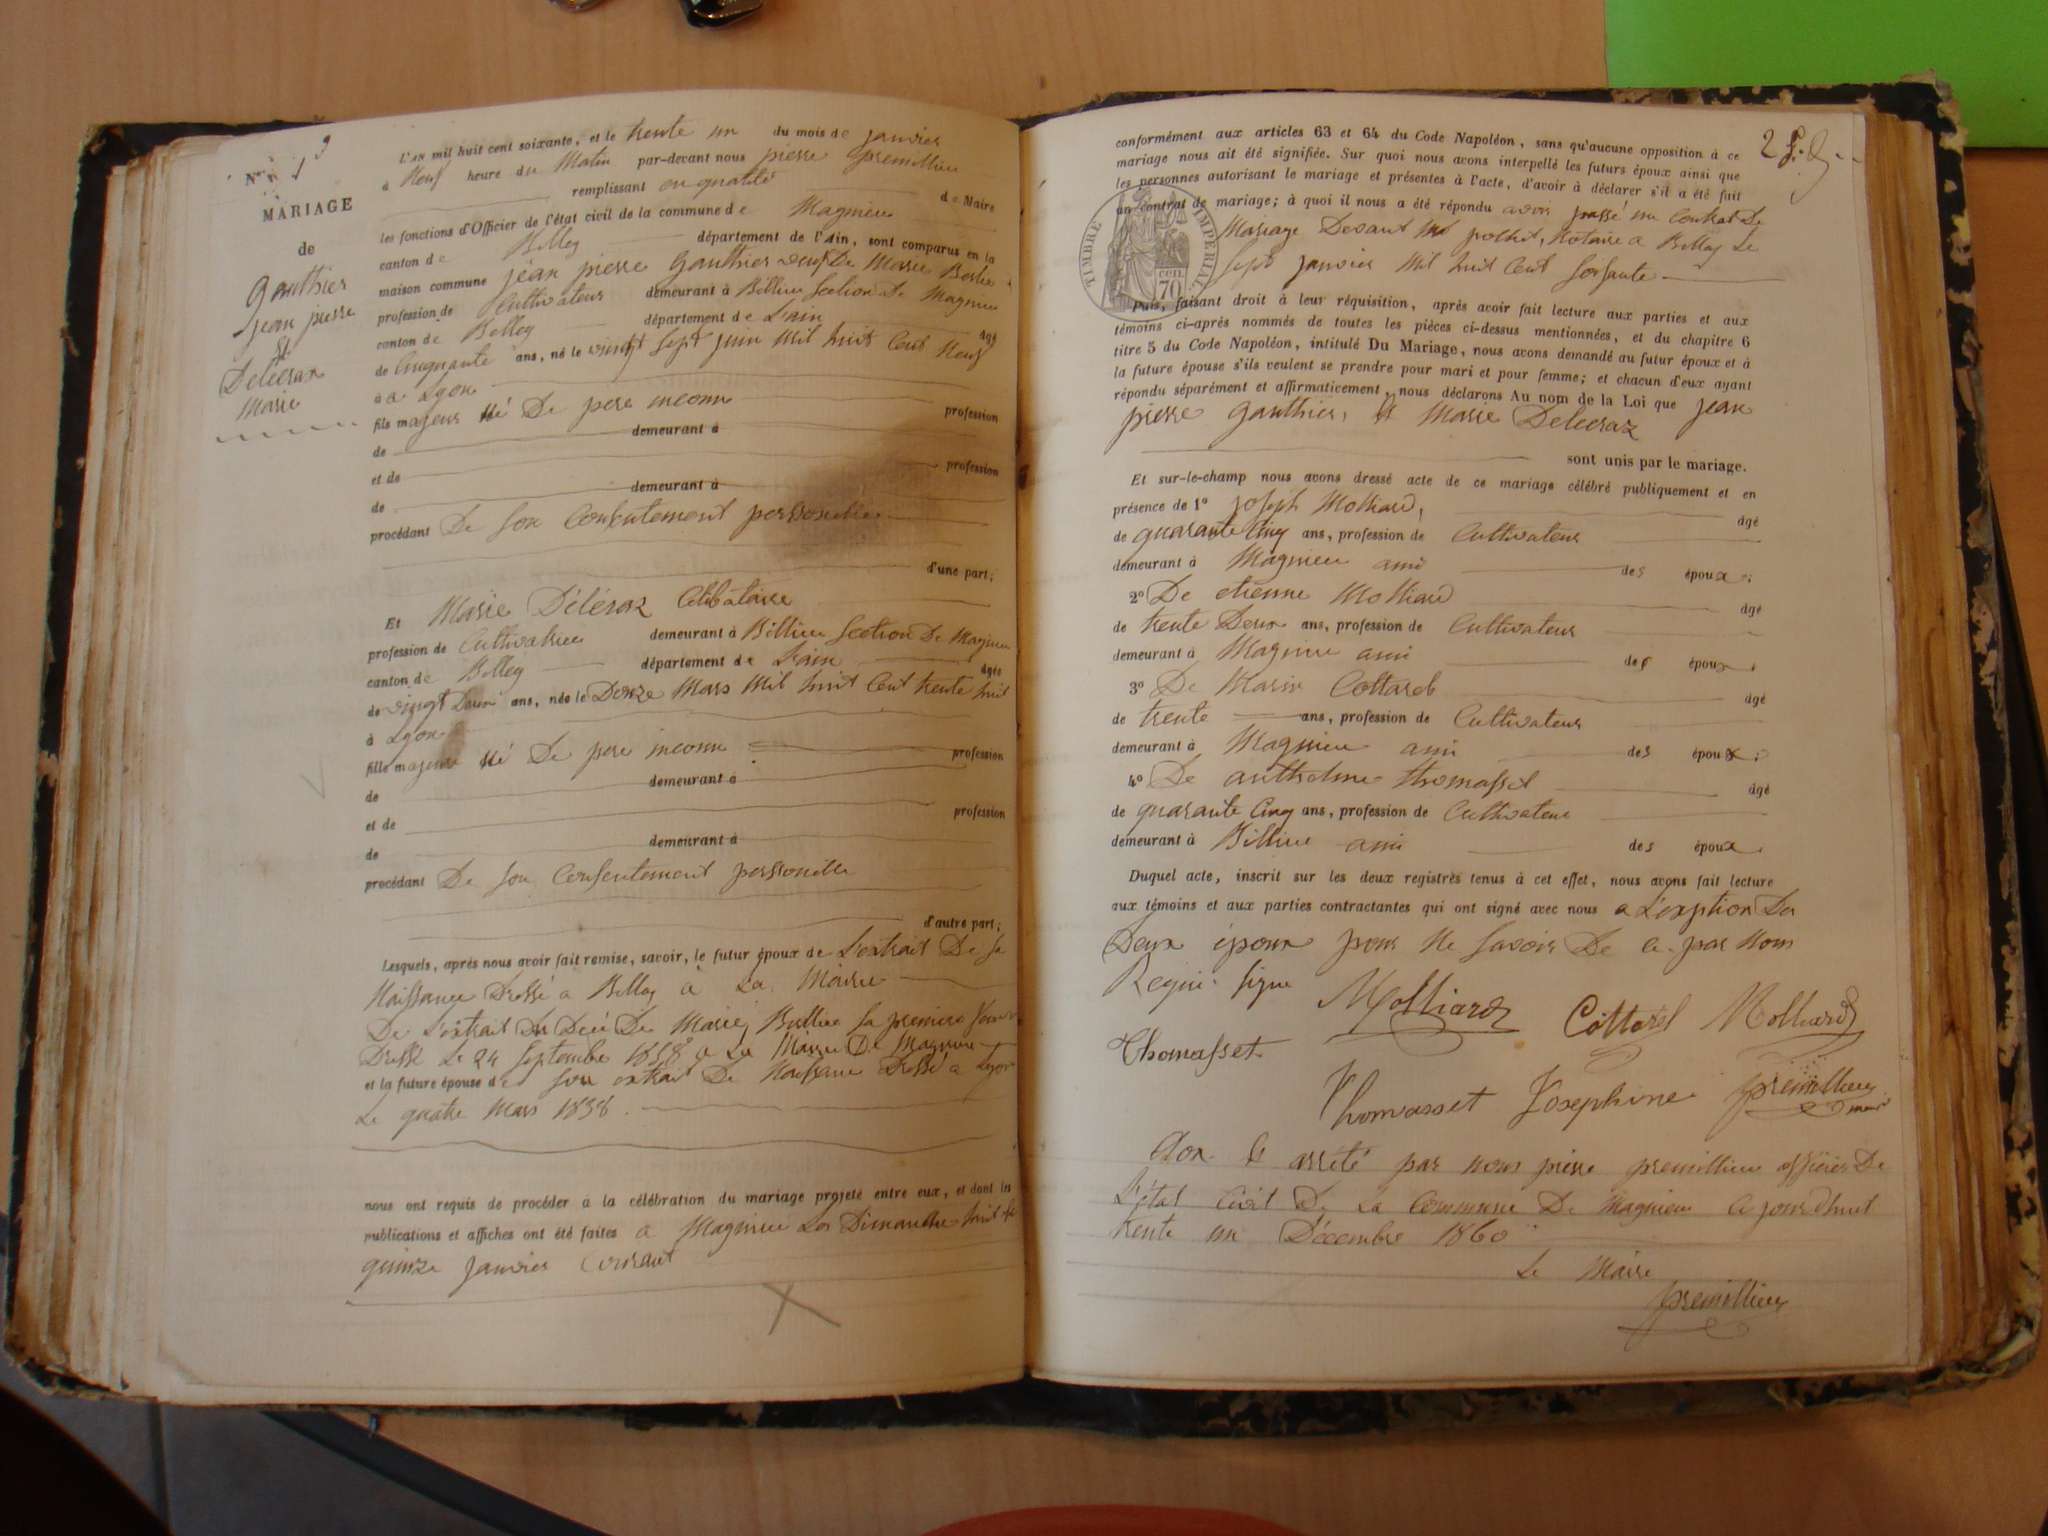 N° 1
MARIAGE
de
Gauthier
jean pierre
et
Deléraz
Marie
L'AN mil huit cent soixante, et le trente un du mois de janvier
à Neuf heure du Matin par-devant nous pierre premillieu
remplissant en qualité de Maire
les fonctions d'Officier de l'état civil de la commune de Magnieu
canton de Belley département de l'Ain, sont comparus en la
maison commune jean pierre Gauthier veuf De Marie
profession de Cultivateur demeurant à Billieu Section De Magnieu
canton de Belley département de L'ain âgé
de Cinquante ans, né le vingt Sept juin Mil huit Cent Neuf
à a Lyon
fils majeur Né De pere inconnu profession
de demeurant à
et de profession
de demeurant à
procédant De Son Consentement personelle
d'une part;
Et Marie Déléraz Célibataire
profession de Cultivatrice demeurant à Billieu Section De Magnieu
canton de Belley département de L'ain âgée
de vingt Deux ans, née le Deuze Mars Mil huit Cent trente huit
à Lyon
fille majeure Né De pere inconnu profession
de demeurant à
et de profession
de demeurant à
procédant De Son Consentement personelle
d'autre part;
Lesquels, après nous avoir fait remise, savoir, le futur époux de L'extrait De Sa
Naissance Dressé a Belley à La Mairie
De L'extrait Du Decé De Marie Sa premiere femme
Dressé Le 24 Septembre 1858 a La Mairie De Magnieu
et la future épouse de Son extrait De Naissance Dressé a Lyon
Le quatre Mars 1838.
nous ont requis de procéder à la célébration du mariage projeté entre eux, et dont les
publications et affiches ont été faites a Magnieu Les Dimanche huit et
quinze janvier Courant
2
conformément aux articles 63 et 64 du Code Napoléon, sans qu'aucune opposition à ce
mariage nous ait été signifiée. Sur quoi nous avons interpellé les futurs époux ainsi que
les personnes autorisant le mariage et présentes à l'acte, d'avoir à déclarer s'il a été fait
un contrat de mariage; à quoi il nous a été répondu avoir passé un Contrat De
Mariage Devant Me pochet, Notaire a Belley Le
Sept janvier Mil huit Cent Soixante
TIMBRE IMPÉRIAL
70 cen
Puis, faisant droit à leur réquisition, après avoir fait lecture aux parties et aux
témoins ci-après nommés de toutes les pièces ci-dessus mentionnées, et du chapitre 6
titre 5 du Code Napoléon, intitulé Du Mariage, nous avons demandé au futur époux et à
la future épouse s'ils veulent se prendre pour mari et pour femme; et chacun d'eux ayant
répondu séparément et affirmativement, nous déclarons Au nom de la Loi que jean
pierre Gauthier, et Marie Deleeraz
sont unis par le mariage.
Et sur-le-champ nous avons dressé acte de ce mariage célébré publiquement et en
présence de 1° joseph Molliard, âgé
de quarante Cinq ans, profession de Cultivateur
demeurant à Magnieu ami des époux;
2° De etienne Molliard âgé
de trente Deux ans, profession de Cultivateur
demeurant à Magnieu ami des époux;
3° De Marin Cottarel âgé
de trente ans, profession de Cultivateur
demeurant à Magnieu ami des époux;
4° De anthelme thomasset âgé
de quarante Cinq ans, profession de Cultivateur
demeurant à Billieu ami des époux.
Duquel acte, inscrit sur les deux registres tenus à cet effet, nous avons fait lecture
aux témoins et aux parties contractantes qui ont signé avec nous a L'exption Des
Deux époux pour Ne Savoir De ce par Nous
Requi. Signe
Molliard Cottarel Molliard
Thomasset
Thomasset Josephine premillieu
maire
Clos et arrété par nous pierre premillieu officier De
L'état Civil De La Commune De Magnieu Ce jourd'huit
trente un Décembre 1860
Le Maire
premillieu